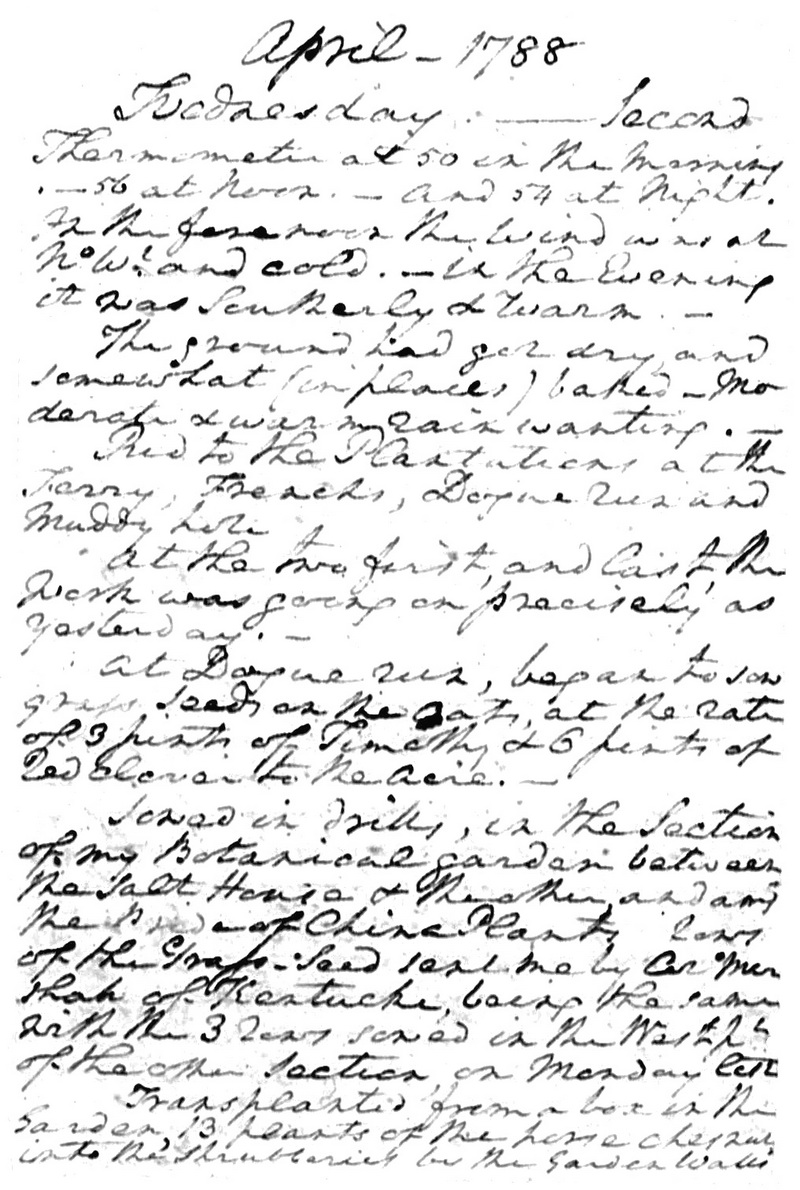 April – 1788
Wednesday. —— Second
Thermometer at 50 in the Morning
. – 56 at Noon. – and 54 at Night.
In the forenoon the Wind was at
No. Wt. and cold. – in the Evening
it was Southerly & Warm. –
The ground had got dry, and
somewhat (in places) baked – Mo
derate & warm rain wanting. –
Rid to the Plantations at the
Ferry, Frenchs, Dogue run and
Muddy hole
At the two first, and last, the
Work was going on precisely as
yesterday. –
At Dogue run, began to sow
grass seeds on the Oats, at the rate
of 3 pints of Timothy & 6 pints of
Red clover to the Acre. –
Sowed in drills, in the Section
of my Botanical garden between
the Salt House & the other, and
the of China Plants rows
of the Grass-Seed sent me by Colo. Mar
shall of Kentucke, being the same
with the 3 rows sowed in the West
of the other section, on Monday last
Transplanted from a box in the
Garden, 13 plants of the horse chesnut
into the shrubberies by the Garden Walls